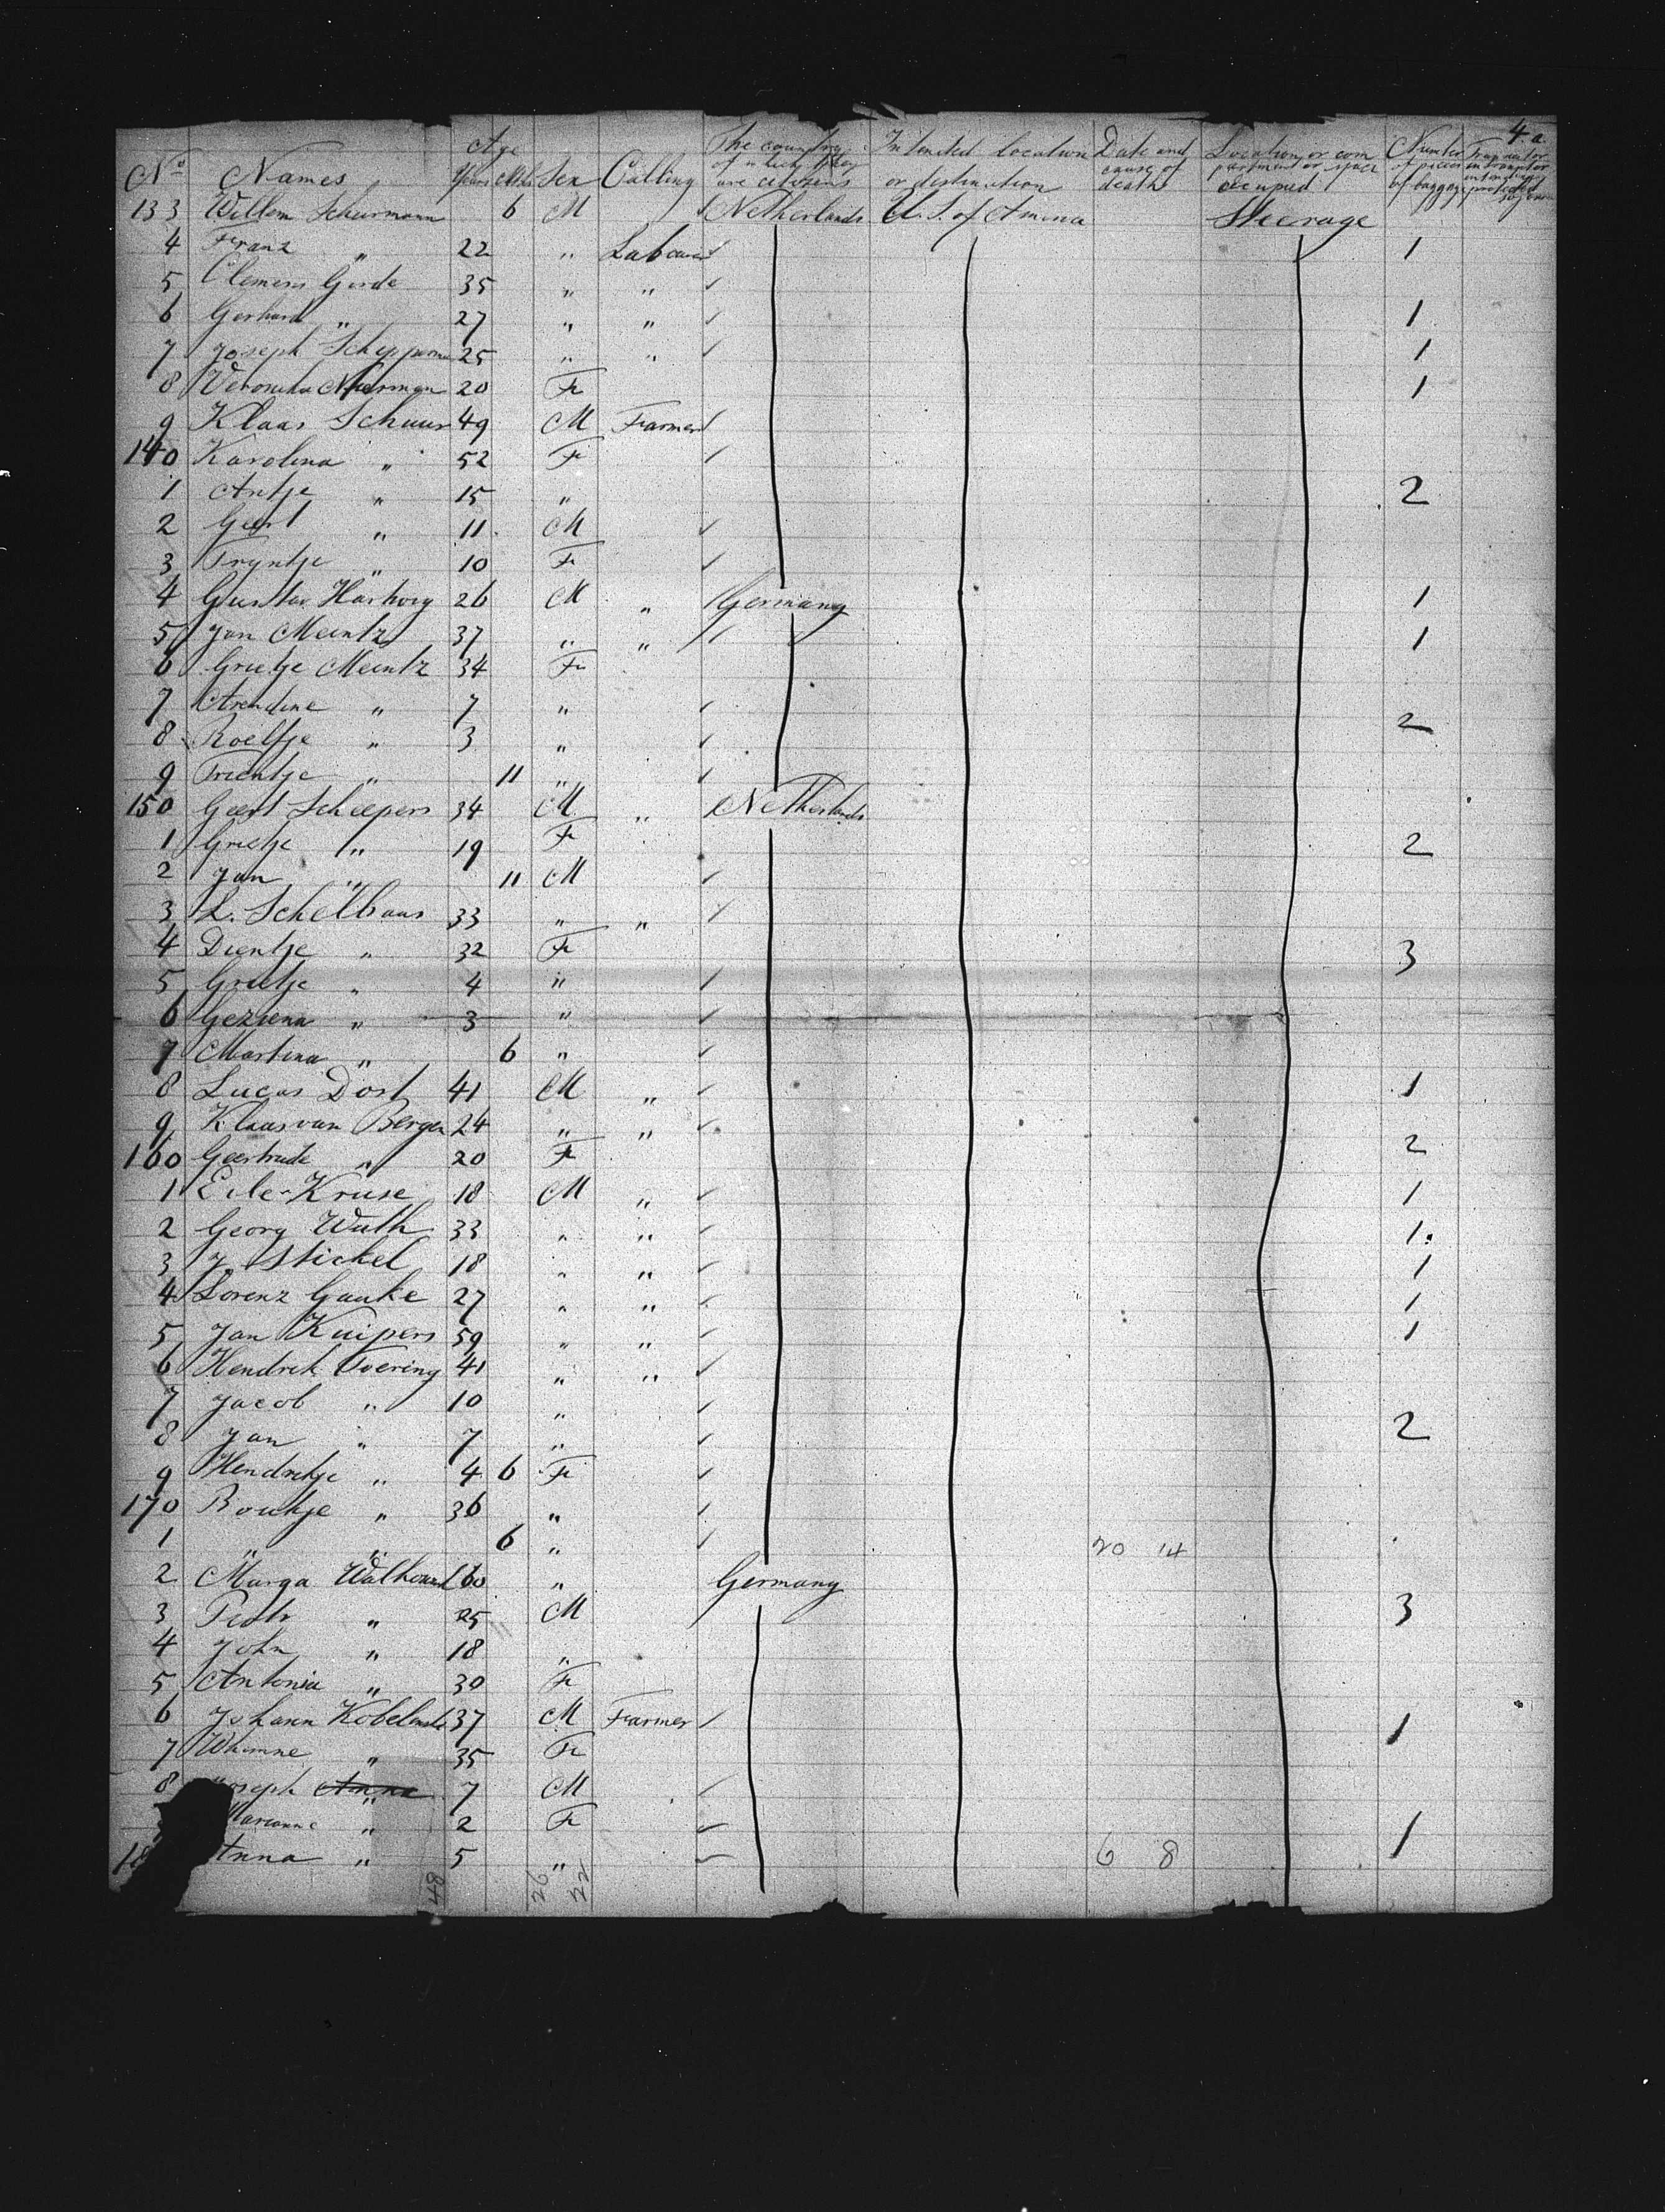 4.a.
No Names Age Years Mths Sex Calling The country of which they are citizens Intended location or destination Date and cause of death Location or compartment or space occupied Number of pieces of baggage
133 Willem Schurmann 6 M Netherlands U. S. of America Steerage
4 Franz " 22 " Labourer 1
5 Clemens Gerde 35 " "
6 Gerhard " 27 " " 1
7 Joseph 25 " " 1
8 Veronika 20 Fe 1
9 Klaas Schuur 49 M Farmer
140 Karolina " 52 Fe
1 Antje " 15 " 2
2 Geert " 11 M
3 Tryntje " 10 Fe
4 Gustav Harborg 26 M " Germany 1
5 Jan Meentz 37 " " 1
6 Grietje Meentz 34 Fe
7 Arendine " 7 "
8 Roelfje " 3 " 2
9 Trientje " 11 "
150 Geert Scheepers 34 M " Netherlands
1 Grietje " 19 Fe 2
2 Jan " 11 M
3 L. Schelbaas 33 " "
4 Dientje " 32 Fe 3
5 Grietje " 4 "
6 Geziena " 3 "
7 Martina " 6 "
8 Lucas Dost 41 M " 1
9 Klaas van Bergen 24 " "
160 Geertrude " 20 Fe 2
1 Kruse 18 M " 1
2 Georg Wuth 33 " " 1
3 J. Stickel 18 " " 1
4 Lorenz Gauke 27 " " 1
5 Jan Kuipers 59 " " 1
6 Hendrik Toering 41 " "
7 Jacob " 10 "
8 Jan " 7 " 2
9 Hendrikje " 4 6 Fe
170 Boukje " 36 "
1 " " 6 " 20 14
2 Marga 60 " Germany
3 " 25 M 3
4 John " 18 "
5 Antonia " 30 Fe
6 Johann 37 M Farmer 1
7 " 35 Fe
8 Joseph Anna " 7 M
Marianne " 2 Fe 1
Anna " 5 " 6 8
48 26 22